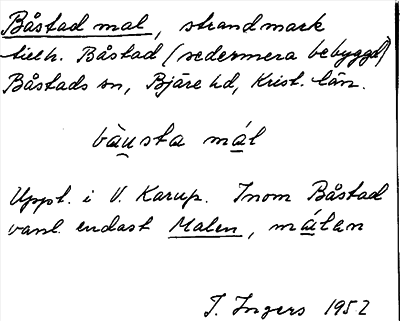 Båstad mal, strandmark
tillh. Båstad (sedermera bebyggd)
Båstads sn, Bjäre hd, Krist. län.
bàusta mál
Uppt. i V. Karup. Inom Båstad
vanl. endast Malen, málan
I. Ingers 1952